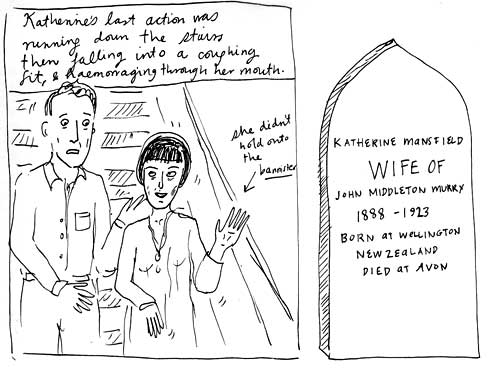 Katherine's last action was
running down the stairs
then falling into a coughing
fit, & haemorraging through her mouth.
she didn't
hold onto
the
bannister
KATHERINE MANSFIELD
WIFE OF
JOHN MIDDLETON MURRY
1888 - 1923
BORN at WELLINGTON
NEW ZEALAND
DIED at AVON